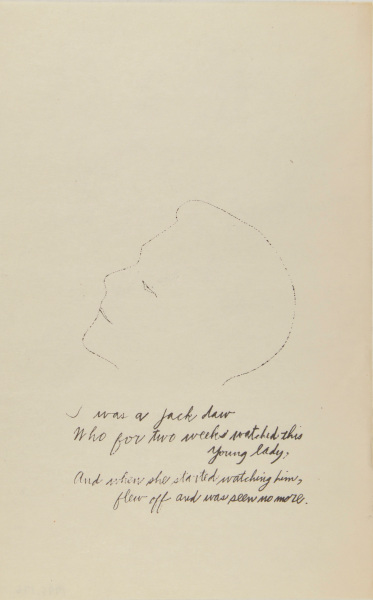 I was a jack daw
Who for two weeks watched this
young lady,
And when she started watching him,
flew off and was seen no more.